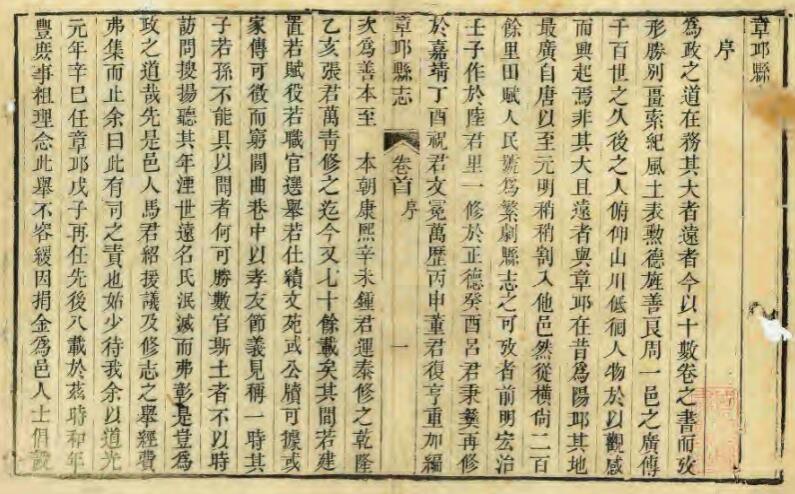 章邱縣
序
為政之道在務其大者遠者今以十數卷之書而攷
形勝別畺索紀風土表勲德旌善良周一邑之廣傳
千百世之久後之人俯仰山川低徊人物於以觀感
而興起焉非其大且遠者與章邱在昔為陽邱其地
最廣自唐以至元明稍稍割入他邑然從橫尙二百
餘里田賦人民號為繁劇縣志之可攷者前明宏治
壬子作於陸君里一修於正德癸酉呂君秉彝再修
於嘉靖丁酉祝君文冕萬歷丙申董君復亨重加編
章邱縣志 卷首 序 一
次為善本至 本朝康熙辛未鍾君運泰修之乾隆
乙亥張君萬青修之迄今又七十餘載矣其間若建
置若賦役若職官選舉若仕績文苑或公牘可據或
家傳可徵而窮閭曲巷中以孝友節義見稱一時其
子若孫不能具以聞者何可勝數官斯土者不以時
訪問搜揚聽其年湮世遠名氏泯滅而弗彰是豈為
政之道哉先是邑人馬君紹援議及修志之舉經費
弗集而止余曰此有司之責也始少待我余以道光
元年辛巳任章邱戊子再任先後八載於茲時和年
豐庶事粗理念此舉不容緩因捐金為邑人士倡設